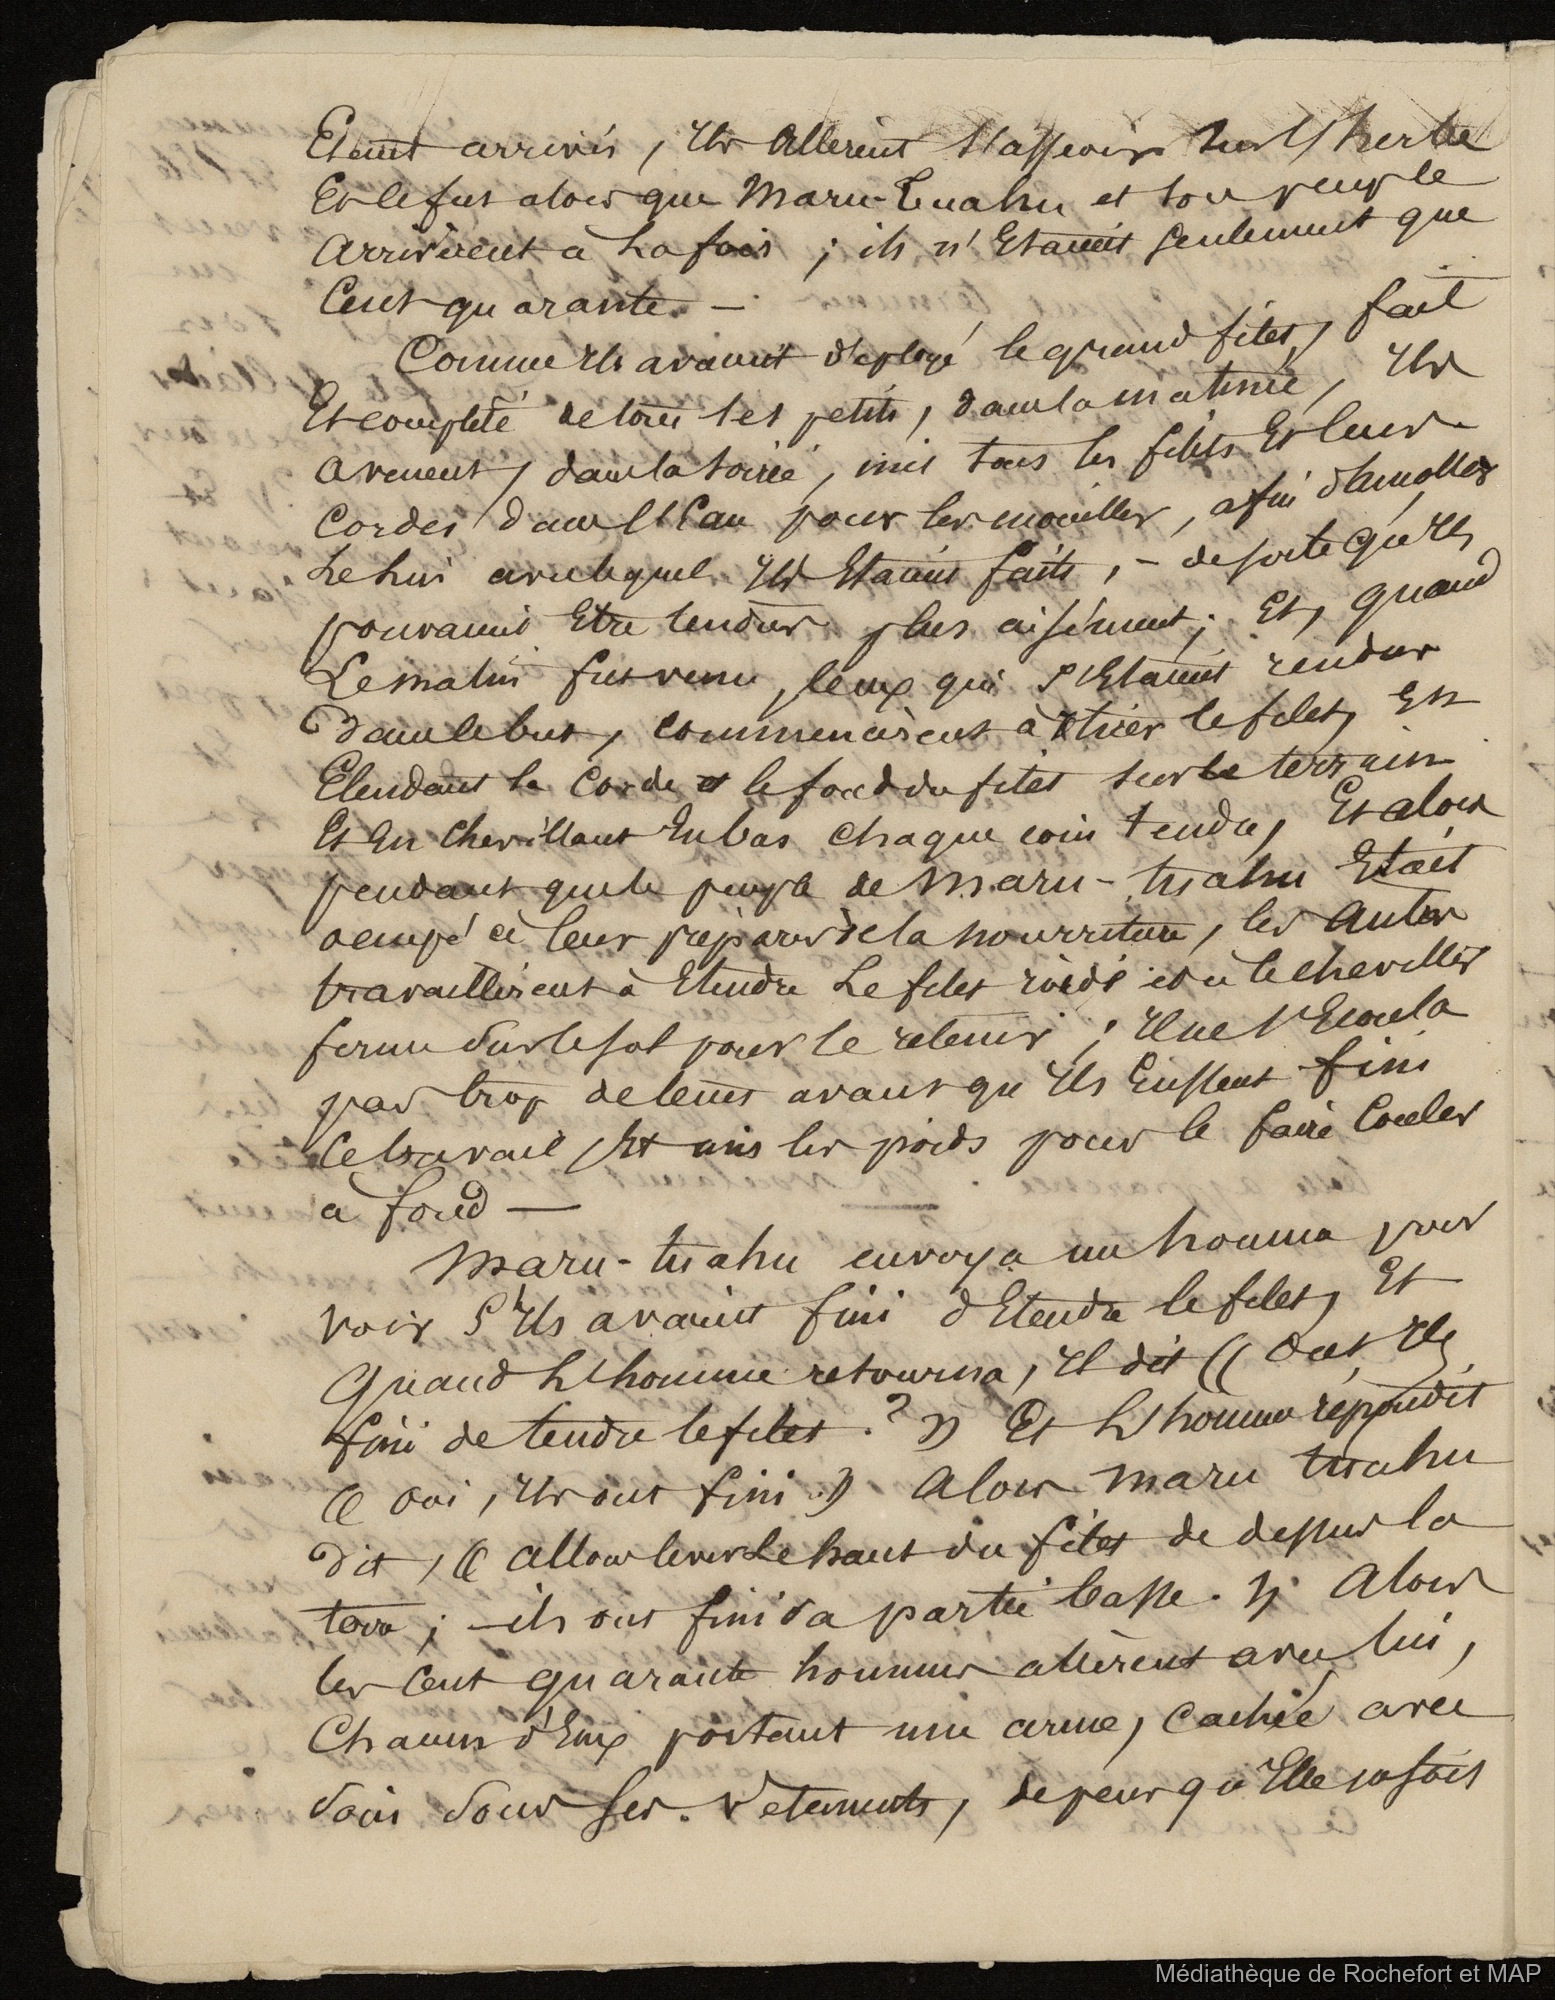 Etant arrivés, Ils Allèrent s'asseoir sur l'herbe
Et ce fut alors que Maru-tuahu et son peuple
Arrivèrent à la fois ; ils n'Etaient seulement que
Cent quarante. —
Comme Ils avaient déployé le grand filet, fait
Et complété de tous les petits, dans la matinée, Ils
avaient, dans la soirée, mis tous les filets Et leurs
Cordes dans l'Eau pour les mouiller, afin d'amollir
Le lin avec lequel Ils Etaient faits, — de sorte qu'Ils
pouvaient Etre tendus plus aisément ; Et, quand
Le matin fut venu, ceux qui s'Etaient rendus
dans le but, commencèrent à tirer le filet, En
Etendant la Corde et le fond du filet sur le terrain
Et En Chevillant En bas chaque coin tendu, Et alors
pendant que le peuple de Maru-tuahu Etait
occupé à leur préparer de la nourriture, les Autres
travaillèrent à Etendre Le filet roide et à le cheviller
ferme sur le sol pour le retenir ; Il ne s'Ecoula
pas trop de tems avant qu'Ils Eussent fini
Ce travail, Et mis les poids pour le faire Couler
à fond —
Maru-tuahu envoya un homme pour
voir s'Ils avaient fini d'Etendre le filet, Et
Quand L'homme retourna, Il dit (( Ont Ils
fini de tendre le filet. ? )) Et L'homme répondit
(( Oui, Ils ont fini. )) Alors Maru tuahu
dit, (( Allons lever Le haut du filet de dessus la
terre ; — ils ont fini sa partie basse. )) Alors
les Cent quarante hommes allèrent avec lui,
Chacun d'Eux portant une arme, Cachée avec
soin sous ses. Vetements, de peur qu'Elle ne fait